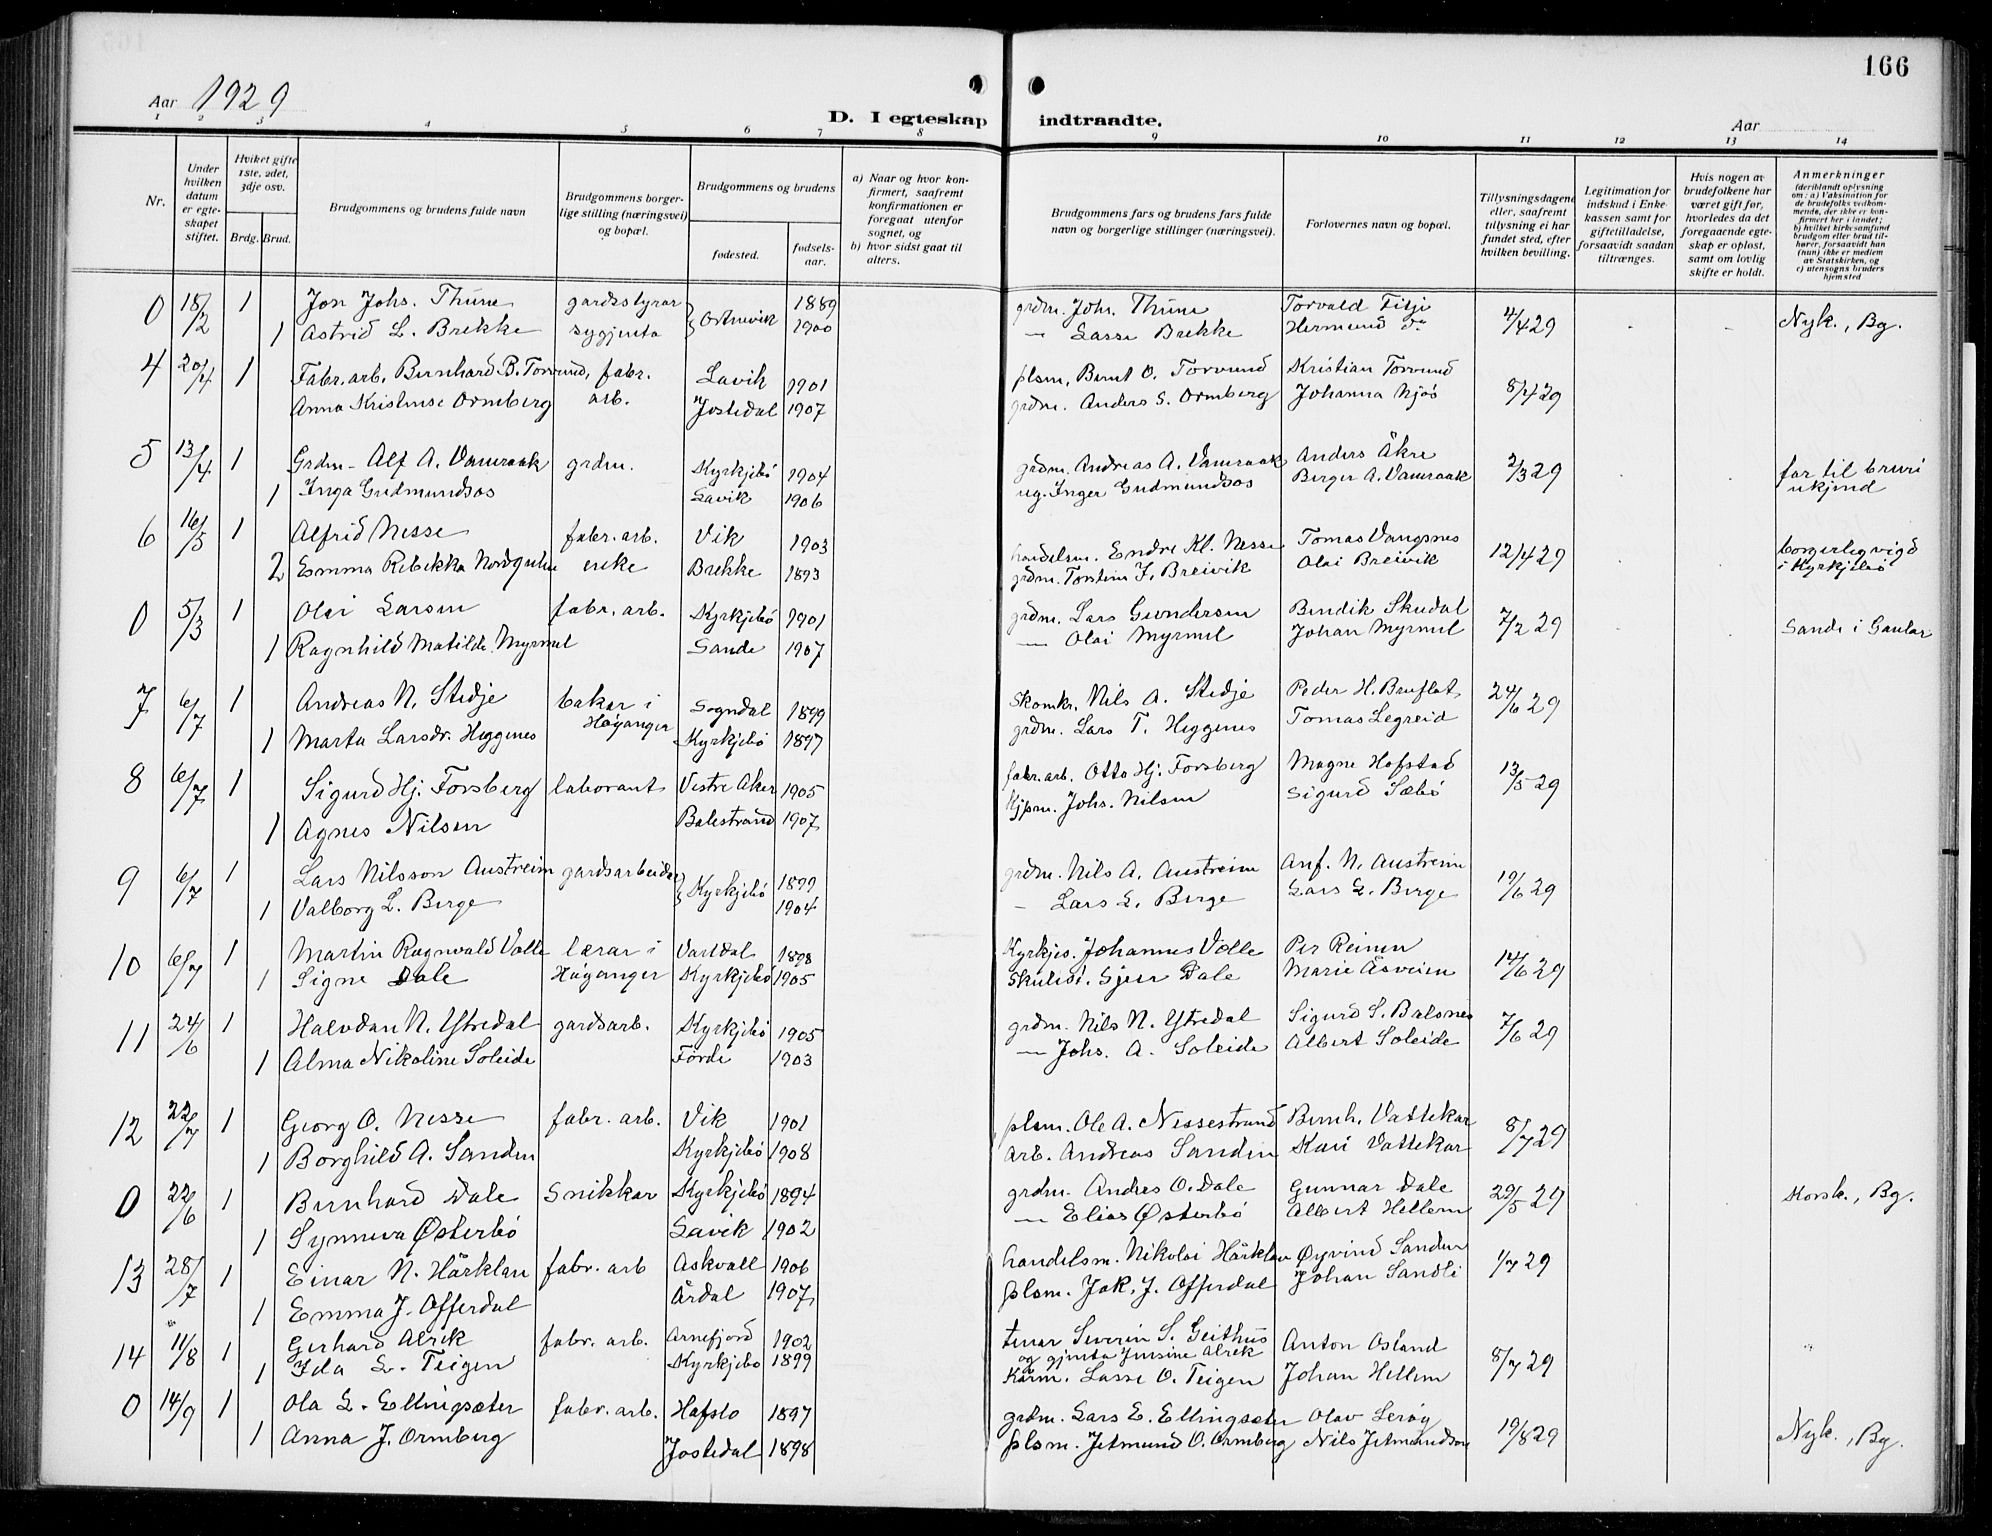 166
Aar 1929
D. I egteskap indtraadte.
Aar
1 2 3 4 5 6 7 8 9 10 11 12 13 14
Nr.
Under hvilken datum er egteskapet stiftet.
Hviket gifte 1ste, 2det, 3dje osv.
Brdg. Brud.
Brudgommens og brudens fulde navn
Brudgommens borgerlige stilling (næringsvei) og bopæl.
Brudgommens og brudens
fødested.
fødselsaar.
a) Naar og hvor konfirmert, saafremt konfirmationen er foregaat utenfor sognet, og
b) hvor sidst gaat til alters.
Brudgommens fars og brudens fars fulde navn og borgerlige stillinger (næringsvei).
Forlovernes navn og bopæl.
Tillysningsdagene eller, saafremt tillysning ei har fundet sted, efter hvilken bevilling.
Legitimation for indskud i Enkekassen samt for giftetilladelse, forsaavidt saadan tiltrænges.
Hvis nogen av brudefolkene har været gift før, hvorledes da det foregaaende egteskap er opløst, samt om lovlig skifte er holdt.
Anmerkninger
(deriblandt oplysning om: a) Vaksination for de brudefolks vedkommende, der ikke er konfirmert her i landet; b) hvilket kirkesamfund brudgom eller brud tilhører, forsaavidt han (hun) ikke er medlem av Statskirken, og c) utensogns bruders hjemsted
0 18/2 1 Jon Johs. Thüne gardsstyrar } Ortnevik 1889 grdm. Johs. Thüne Torvald Fitje 4/4 29 Nyk., Bg.
1 Astrid L. Brekke sygjenta 1900 — Lasse Brekke Hermund do
4 20/4 1 Fabr. arb. Bernhard B. Torvund, fabr. Lavik 1901 plsm. Bernt O. Torvund Kristian Torvund 8/4 29
Anna Kristense Ormberg arb. Jostedal 1907 grdm. Anders S. Ormberg Johanna Njøs
5 13/4 1 Grdm. Alf A. Vamraak grdm. Kyrkjebø 1904 grdm. Andreas A. Vamraak Anders Åkre 2/3 29 far til bruri
1 Inga Gudmundsos Lavik 1906 ug. Inger Gudmundsos Berger A. Vamraak ukjend
6 16/5 1 Alfrid Nesse fabr. arb. Vik 1903 handelsm. Endre Kl. Nesse Tomas Vangsnes 12/4 29 borgerleg vigd
2 Emma Rebekka Nordgulen enke Brekke 1893 grdm. Torstein J. Breivik Olai Breivik i Kyrkjebø
0 5/3 1 Olai Larsen fabr. arb. Kyrkjebø 1901 grdm. Lars Gundersen Bendik Skudal 7/2 29 Sande i Gaular
1 Ragnhild Matilde Myrmel Sande 1907 — Olai Myrmel Johan Myrmel
7 6/7 1 Andreas N. Stedje bakar i Sogndal 1899 skomkr. Nils A. Stedje Peder H. Bruflat 24/6 29
1 Marta Larsdr. Heggenes Høyanger Kyrkjebø 1897 grdm. Lars T. Heggenes Tomas Legreid
8 6/7 1 Sigurd Hj. Forsberg laborant Vestre Aker 1905 fabr. arb. Otto Hj. Forsberg Magne Hofstad 13/5 29
1 Agnes Nilsen Balestrand 1907 kjpm. Johs. Nilsen Sigurd Sæbø
9 6/7 1 Lars Nilsson Austreim gardsarbeidar } Kyrkjebø 1899 grdm. Nils A. Austreim Anf. N. Austreim 19/6 29
1 Valborg L. Berge 1904 — Lars L. Berge Lars L. Berge
10 6/7 1 Martin Ragnvald Valle lærar i Vartdal 1898 Kyrkjes. Johannes Valle Per Reinen 14/6 29
1 Signe Dale Høyanger Kyrkjebø 1905 skulest. Sjur Dale Marie Åsveien
11 24/6 1 Halvdan N. Ytredal gardsarb. Kyrkjebø 1905 grdm. Nils N. Ytredal Sigurd S. Balsnes 7/6 29
1 Alma Nikoline Soleide Förde 1903 — Johs. A. Soleide Albert Soleide
12 22/7 1 Georg O. Nesse fabr. arb. Vik 1901 plsm. Ole A. Nessestrand Bernh. Vattekar 8/7 29
1 Borghild A. Sanden Kyrkjebø 1908 arb. Andreas Sanden Kari Vattekar
0 22/6 1 Bernhard Dale Snikkar Kyrkjebø 1894 grdm. Andres O. Dale Gunnar Dale 29/5 29 Korsk., Bg.
1 Synneva Østerbø Lavik 1902 — Elias Østerbø Albert Hellem
13 28/7 1 Einar N. Hårklau fabr. arb Askvoll 1906 handelsm. Nikolai Hårklau Øyvind Sanden 1/7 29
1 Emma J. Offerdal Årdal 1907 plsm. Jak. J. Offerdal Johan Sandli
14 11/8 1 Gerhard Alrek fabr. arb. Arnefjord 1902 tenar Severin S. Geithus Anton Osland 8/7 29
og gjenta Jensine Alrek
1 Ida L. Teigen Kyrkjebø 1899 Kårm. Lasse O. Teigen Johan Hellem
0 14/9 1 Ola L. Ellingsæter fabr. arb. Hafslo 1897 grdm. Lars E. Ellingsæter Olav Lerøy 19/8 29 Nyk., Bg.
1 Anna J. Ormberg Jostedal 1898 plsm. Jetmund O. Ormberg Nils Jetmundson